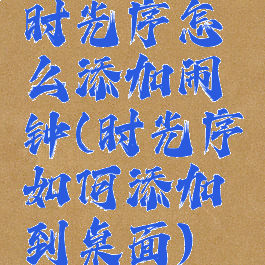 时光序怎
么添加闹
钟(时光序
如何添加
到桌面)